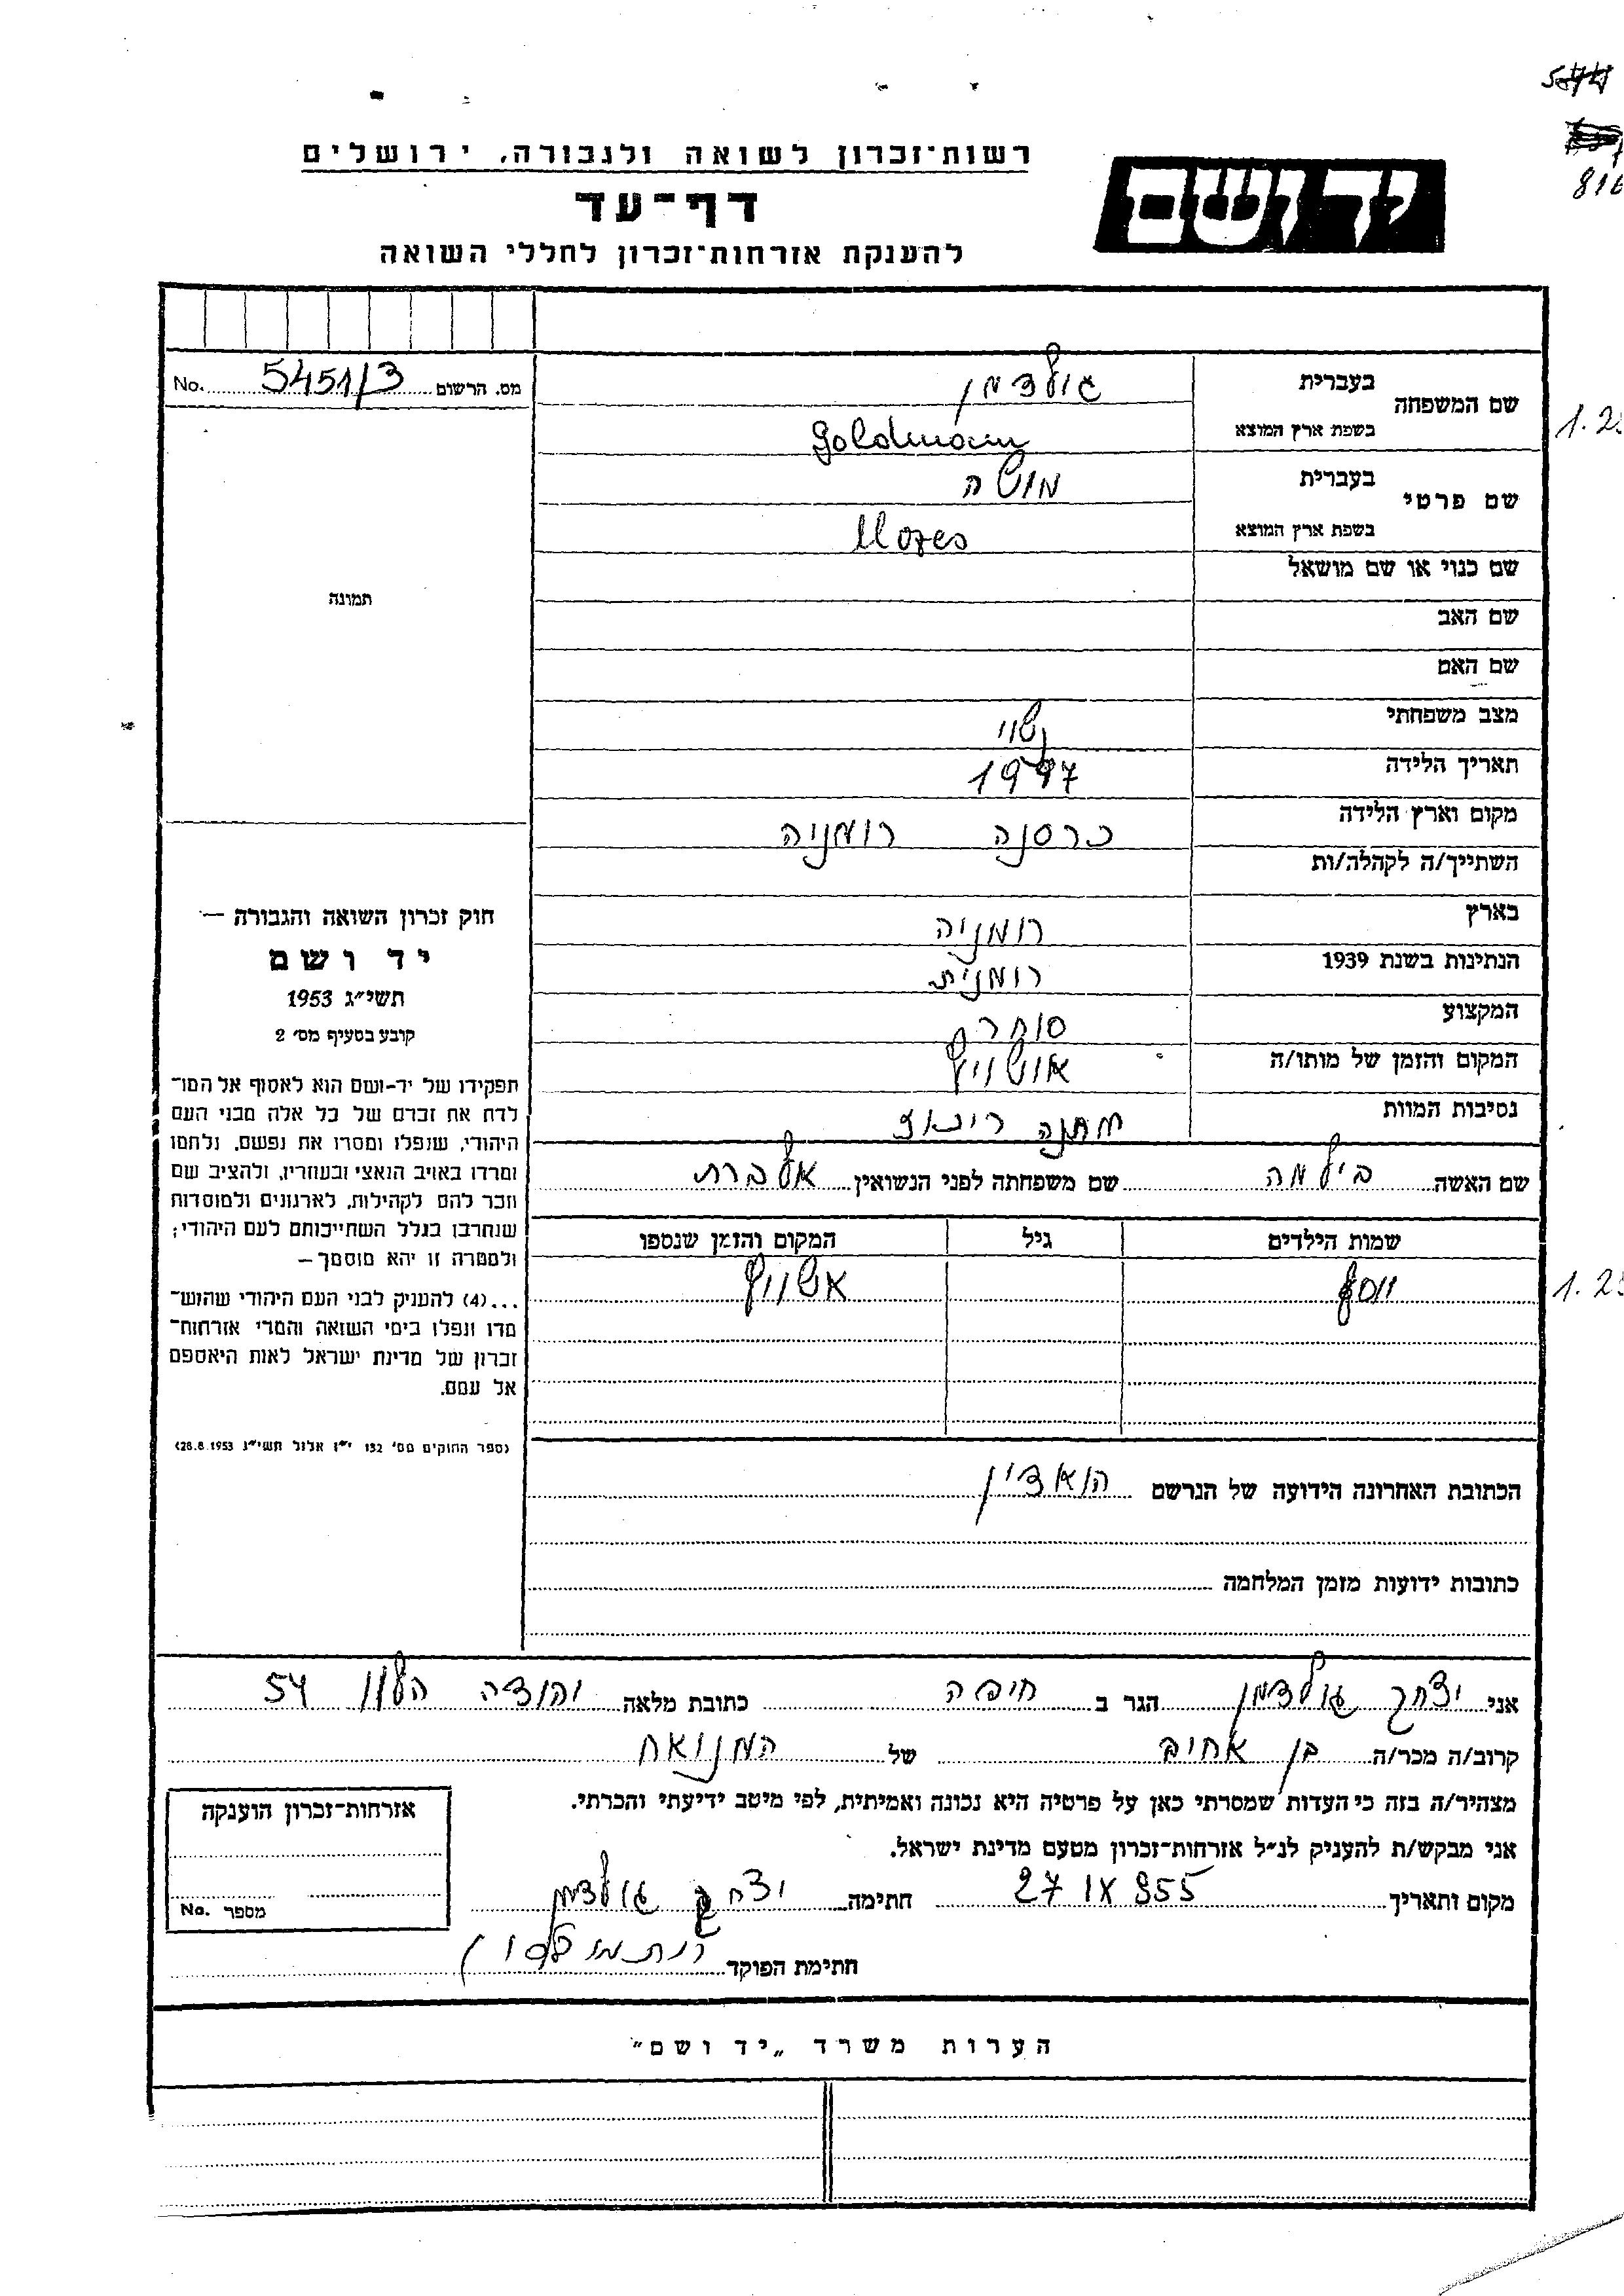 רשות־זכרון לשואה ולגבורה, ירושלים
דף־עד
להענקת אזרחות־זכרון לחללי השואה
יד ושם
816
מס. הרשום 5451/3 No.
שם המשפחה
בעברית גולדמן
בשפת ארץ המוצא Goldmann
1.2
שם פרטי
בעברית מושה
בשפת ארץ המוצא Mozes
שם כנוי או שם מושאל
שם האב
שם האם
מצב משפחתי נשוי
תאריך הלידה
מקום וארץ הלידה כרסנה רומניה
השתייך/ה לקהלה/ות
בארץ רומניה
הנתינות בשנת 1939 רומנית
המקצוע סוחר
המקום והזמן של מותו/ה אושוויץ
נסיבות המוות מחנה ריכוז
שם האשה בילמה שם משפחתה לפני הנשואין אלברת
שמות הילדים גיל המקום והזמן שנספו
יוסף אשוויץ
1.2
הכתובת האחרונה הידועה של הנרשם הואדין
כתובות ידועות מזמן המלחמה
תמונה
חוק זכרון השואה והגבורה —
יד ושם
תשי״ג 1953
קובע בסעיף מס׳ 2
תפקידו של יד-ושם הוא לאסוף אל המו־
לדת את זכרם של כל אלה מבני העם
היהודי, שנפלו ומסרו את נפשם, נלחמו
ומרדו באויב הנאצי ובעוזריו, ולהציב שם
וזכר להם לקהילות, לארגונים ולמוסדות
שנחרבו בגלל השתייכותם לעם היהודי;
ולמטרה זו יהא מוסמך —
...(4) להעניק לבני העם היהודי שהוש־
מדו ונפלו בימי השואה והמרי אזרחות־
זכרון של מדינת ישראל לאות היאספם
אל עמם.
(ספר החוקים מס׳ 132 י״ז אלול תשי״ג 28.8.1953)
אני יצחק גולדמן הגר ב חיפה כתובת מלאה יהודה הלוי 54
קרוב/ה מכר/ה בן אחיב של המנואח
מצהיר/ה בזה כי העדות שמסרתי כאן על פרטיה היא נכונה ואמיתית, לפי מיטב ידיעתי והכרתי.
אני מבקש/ת להעניק לנ״ל אזרחות־זכרון מטעם מדינת ישראל.
מקום ותאריך 27 IX 955 חתימה יצחק גולדמן
חתימת הפוקד
אזרחות־זכרון הוענקה
מספר No.
הערות משרד „יד ושם"